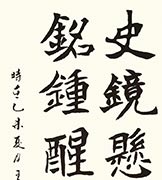 史鏡懸
銘鍾醒
時在乙未夏月